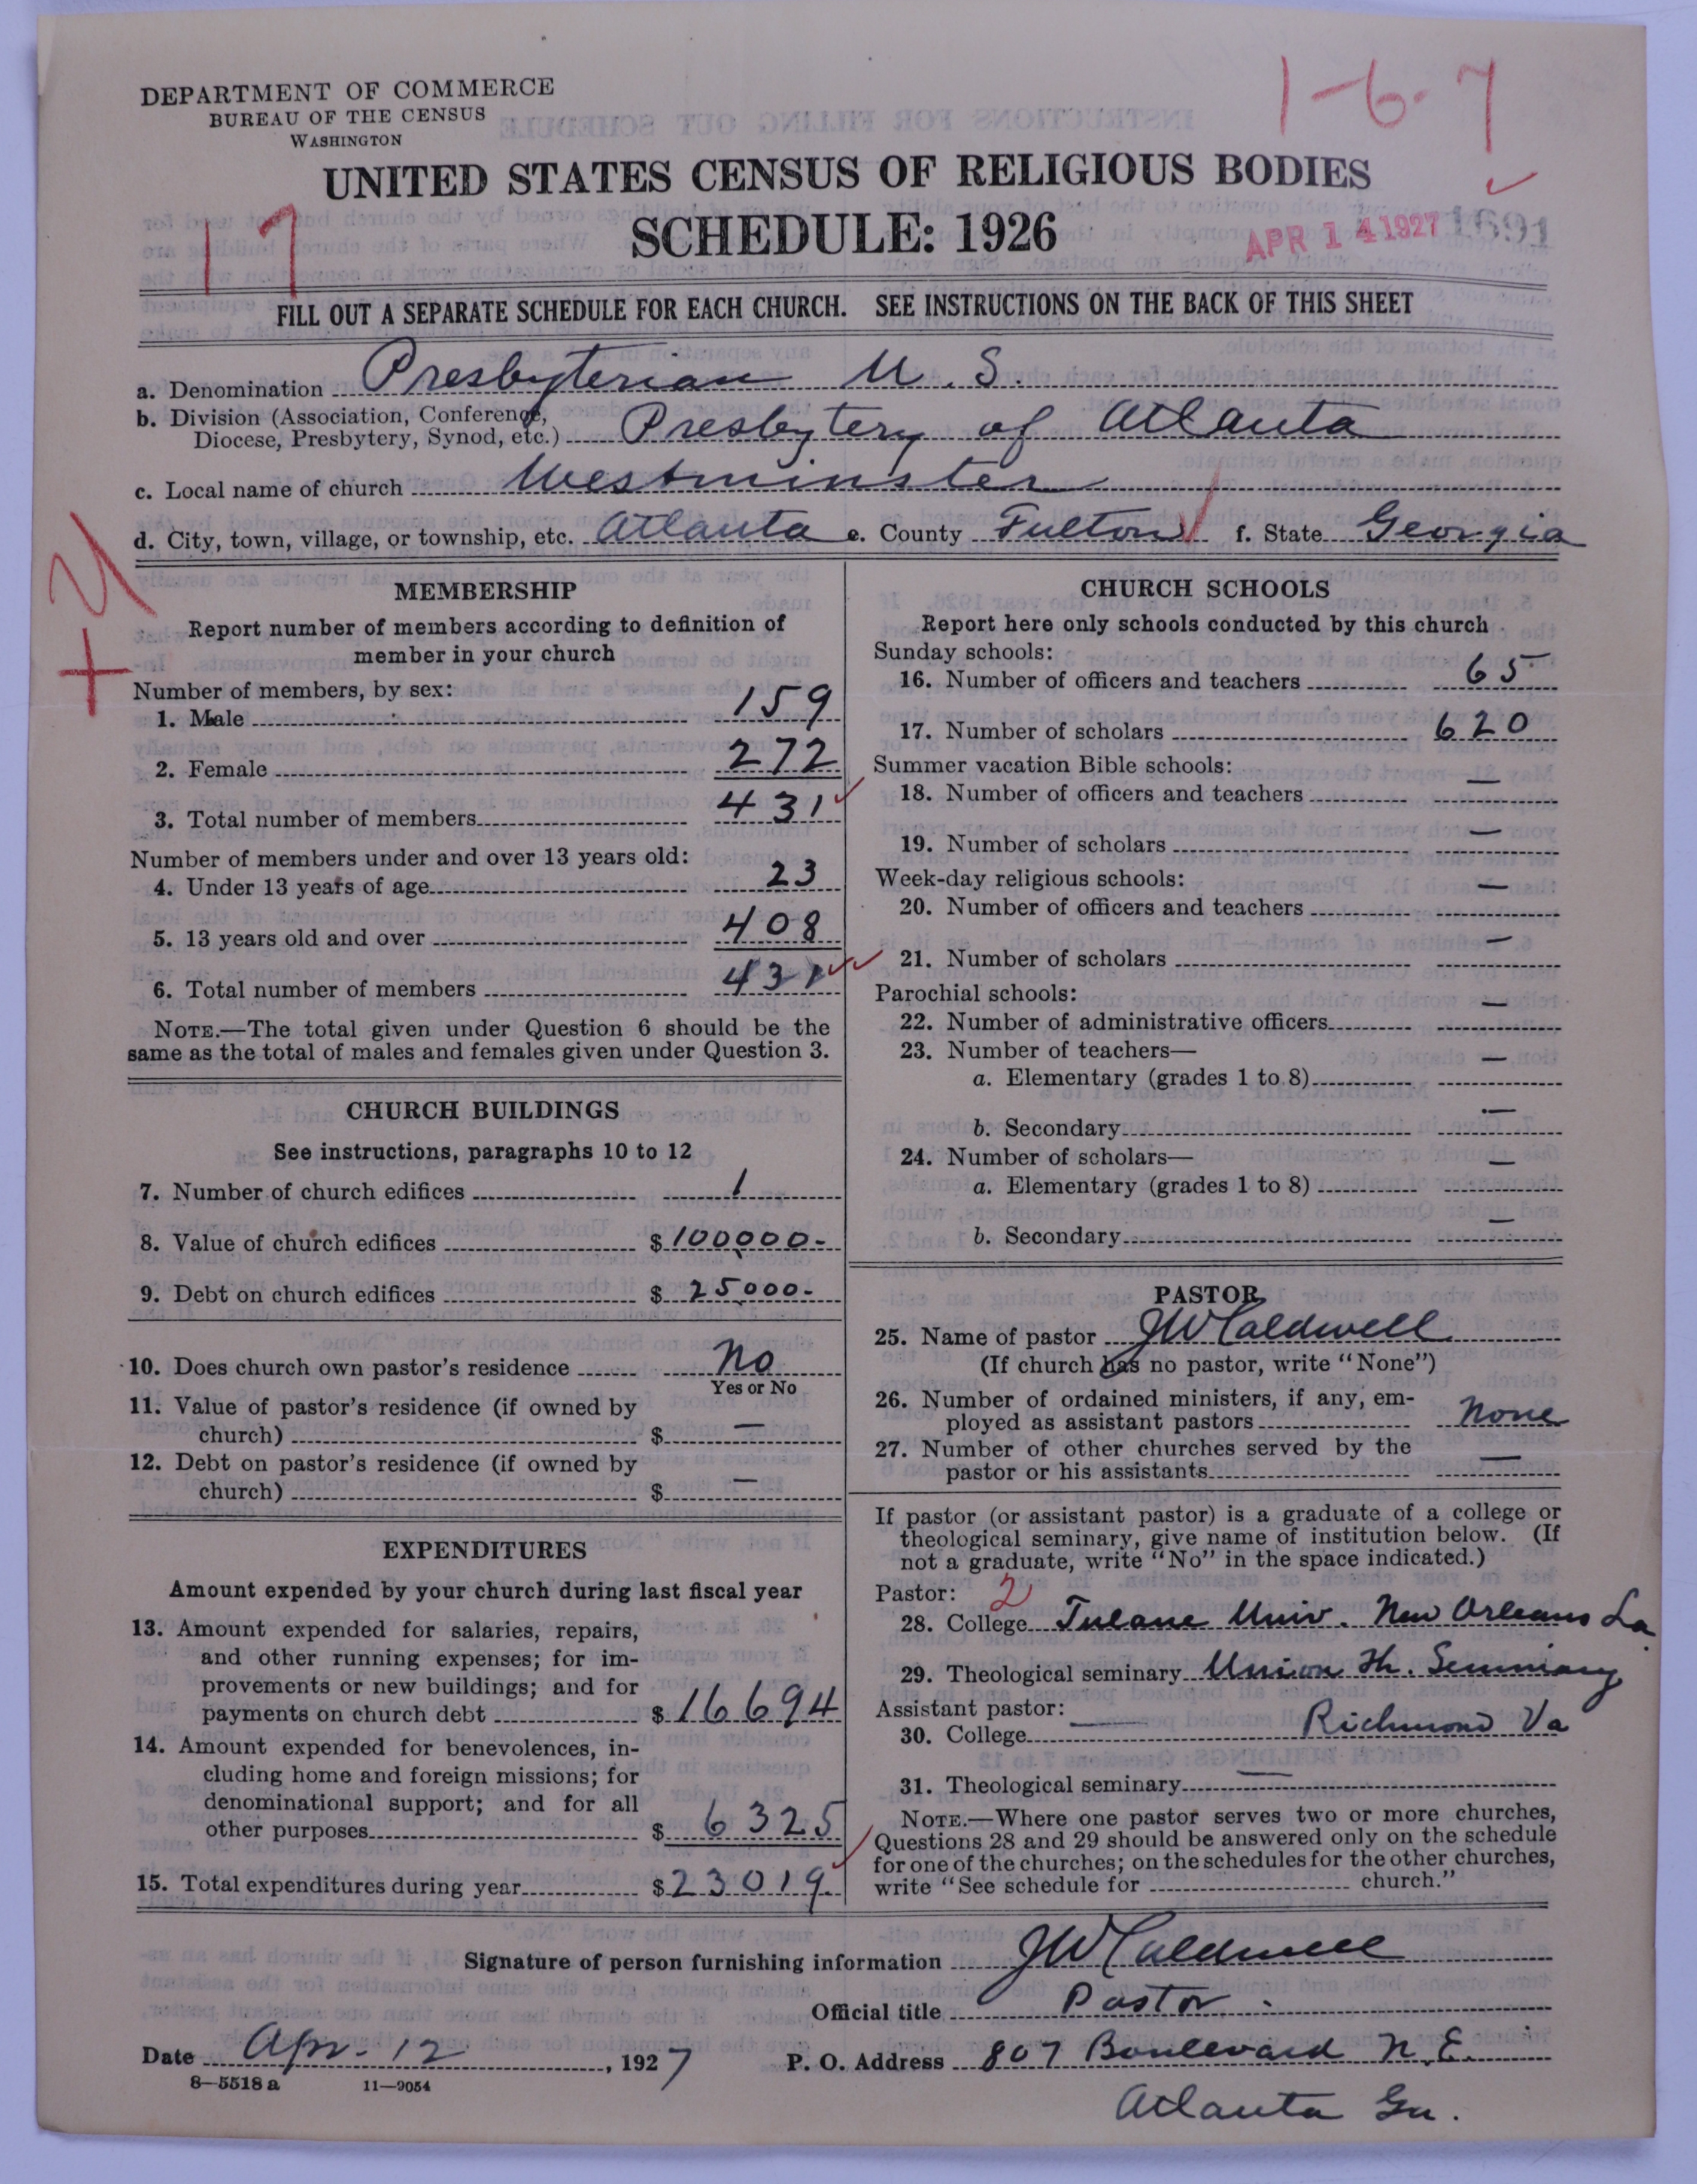 DEPARTMENT OF COMMERCE
BUREAU OF THE CENSUS
WASHINGTON
1-6-7
UNITED STATES CENSUS OF RELIGIOUS BODIES
SCHEDULE: 1926
17
APR 14 1927 1691
FILL OUT A SEPARATE SCHEDULE FOR EACH CHURCH. SEE INSTRUCTIONS ON THE BACK OF THIS SHEET
a. Denomination Presbyterian U. S.
b. Division (Association, Conference,
Diocese, Presbytery, Synod, etc.) Presbytery of Atlanta
c. Local name of church Westminster
d. City, town, village, or township, etc. Atlanta e. County Fulton f. State Georgia
MEMBERSHIP
Report number of members according to definition of
member in your church
Number of members, by sex:
1. Male 159
2. Female 272
3. Total number of members 431
Number of members under and over 13 years old:
4. Under 13 years of age 23
5. 13 years old and over 408
6. Total number of members 431
NOTE.—The total given under Question 6 should be the
same as the total of males and females given under Question 3.
CHURCH BUILDINGS
See instructions, paragraphs 10 to 12
7. Number of church edifices 1
8. Value of church edifices $ 100000-
9. Debt on church edifices $ 25000-
10. Does church own pastor's residence No
Yes or No
11. Value of pastor's residence (if owned by
church) $ —
12. Debt on pastor's residence (if owned by
church) $ —
EXPENDITURES
Amount expended by your church during last fiscal year
13. Amount expended for salaries, repairs,
and other running expenses; for im-
provements or new buildings; and for
payments on church debt $ 16694
14. Amount expended for benevolences, in-
cluding home and foreign missions; for
denominational support; and for all
other purposes $ 6325
15. Total expenditures during year $ 23019
CHURCH SCHOOLS
Report here only schools conducted by this church
Sunday schools:
16. Number of officers and teachers 65
17. Number of scholars 620
Summer vacation Bible schools:
18. Number of officers and teachers —
19. Number of scholars —
Week-day religious schools:
20. Number of officers and teachers —
21. Number of scholars —
Parochial schools:
22. Number of administrative officers —
23. Number of teachers—
a. Elementary (grades 1 to 8) —
b. Secondary —
24. Number of scholars—
a. Elementary (grades 1 to 8) —
b. Secondary —
PASTOR
25. Name of pastor JW Caldwell
(If church has no pastor, write "None")
26. Number of ordained ministers, if any, em-
ployed as assistant pastors None
27. Number of other churches served by the
pastor or his assistants —
If pastor (or assistant pastor) is a graduate of a college or
theological seminary, give name of institution below. (If
not a graduate, write "No" in the space indicated.)
Pastor: 2
28. College Tulane Univ. New Orleans La
29. Theological seminary Union Th. Seminary
Assistant pastor: Richmond Va
30. College —
31. Theological seminary —
NOTE.—Where one pastor serves two or more churches,
Questions 28 and 29 should be answered only on the schedule
for one of the churches; on the schedules for the other churches,
write "See schedule for church."
Signature of person furnishing information JW Caldwell
Official title Pastor
Date Apr. 12, 1927 P. O. Address 807 Boulevard N.E.
8—5518 a 11—9054
Atlanta Ga.